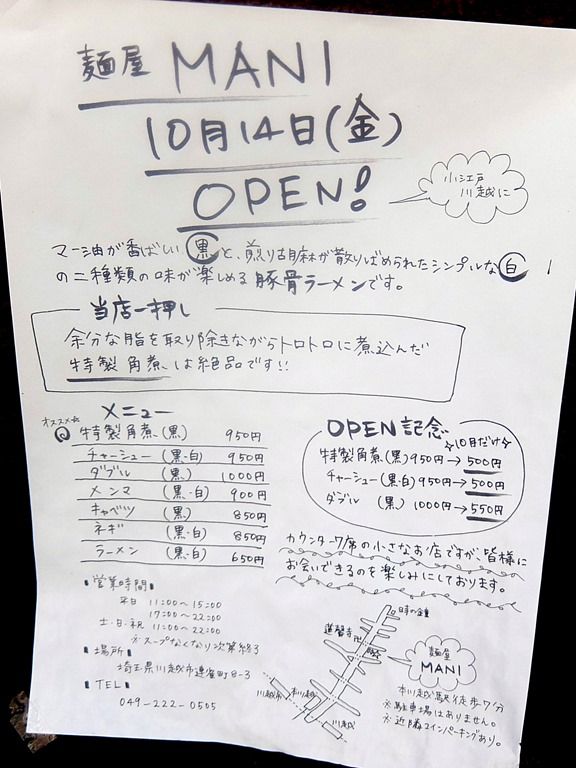 麺屋 MANI
10月14日(金)
OPEN!
小江戸
川越に
マー油が香ばしい黒と、煎り胡麻が散りばめられたシンプルな白
の二種類の味が楽しめる豚骨ラーメンです。
当店一押し
余分な脂を取り除きながらトロトロに煮込んだ
特製角煮、は絶品です!!
メニュー
オススメ☆
特製角煮(黒) 950円
チャーシュー(黒・白) 950円
ダブル (黒) 1000円
メンマ (黒・白) 900円
キャベツ (黒) 850円
ネギ (黒・白) 850円
ラーメン (黒・白) 650円
OPEN記念
☆10月だけ☆
特製角煮(黒)950円→500円
チャーシュー(黒・白)950円→500円
ダブル (黒) 1000円→550円
カウンター7席の小さなお店ですが、皆様に
お会いできるのを楽しみにしております。
■営業時間■
平日 11:00〜15:00
17:00〜22:00
土・日・祝 11:00〜22:00
※スープなくなり次第終了
■場所■
埼玉県川越市連雀町8-3
■TEL■
049-222-0505
時の鐘
蓮馨寺
川越市
本川越
川越
麺屋
MANI
本川越駅徒歩7分
※駐車場はありません。
※近隣コインパーキングあり。